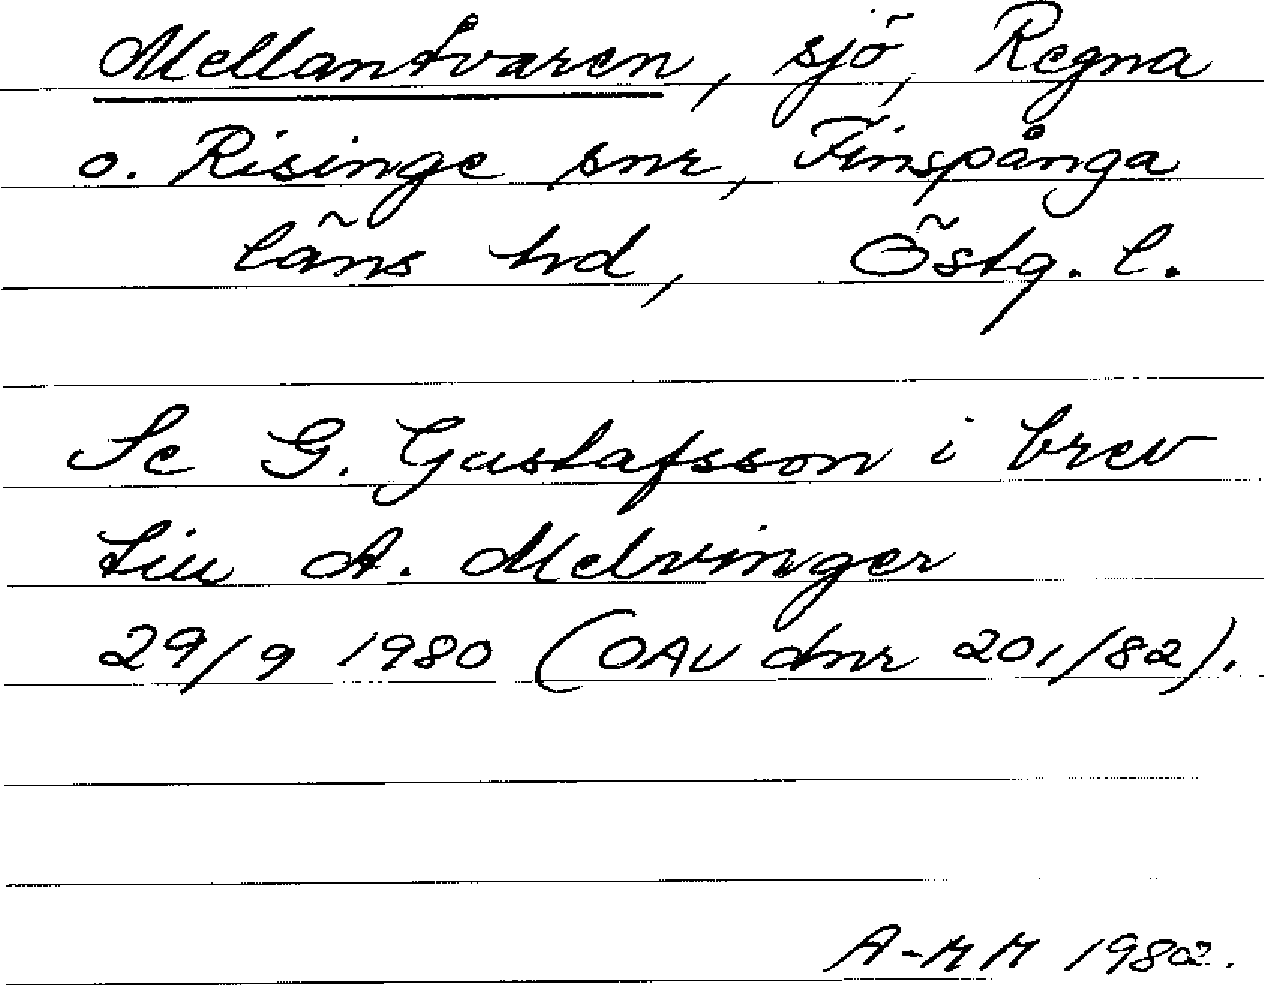 Mellantvaren, sjö, Regna
o. Risinge snr, Finspånga
läns hd, Östg. l.
Se G. Gustafsson i brev
till A. Melvinger
29/9 1980 (OAU dnr 201/82).
A-MM 1982.